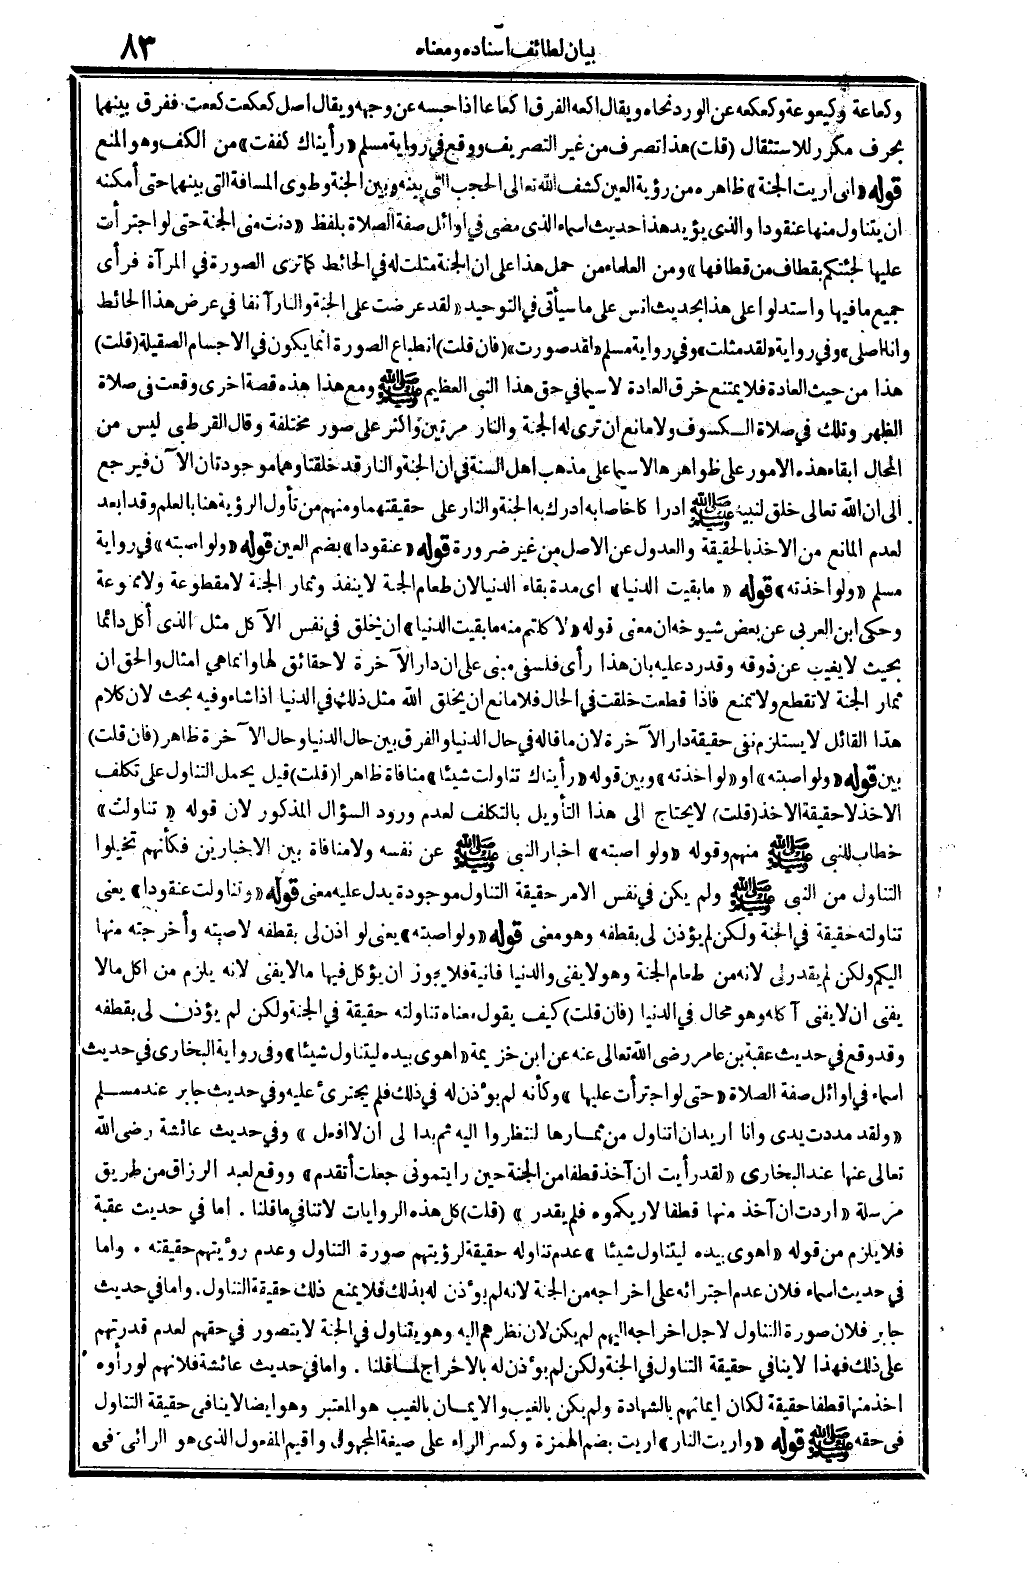 بيان لطائف اسناده ومعناه
٨٣
وكعاعة وكيعوعة وكعكعه عن الورد نحاه ويقال اكعه الفرق اكعاعا اذا حبسه عن وجهه ويقال اصل كعكعت كععت ففرق بينهما
بحرف مكرر للاستثقال (قلت) هذا تصرف من غير التصريف ووقع في رواية مسلم «رأيناك كففت» من الكف وهو المنع
قوله «انى اريت الجنة» ظاهره من رؤية العين كشف الله تعالى الحجب التى بينه وبين الجنة وطوى المسافة التى بينهما حتى أمكنه
ان يتناول منها عنقودا والذى يؤيد هذا حديث اسماء الذى مضى في أوائل صفة الصلاة بلفظ «دنت منى الجنة حتى لو اجترأت
عليها لجئتكم بقطاف من قطافها» ومن العلماء من حمل هذا على ان الجنة مثلت له في الحائط كما ترى الصورة في المرآة فرأى
جميع مافيها واستدلوا على هذا بحديث انس على ما سيأتى في التوحيد «لقد عرضت على الجنة والنار آنفا في عرض هذا الحائط
وانا اصلى» وفي رواية «لقد مثلت» وفي رواية مسلم «لقد صورت» (فان قلت) انطباع الصورة انما يكون في الاجسام الصقيلة (قلت)
هذا من حيث العادة فلا يمتنع خرق العادة لا سيما في حق هذا النبى العظيم ﷺ ومع هذا هذه قصة اخرى وقعت فى صلاة
الظهر وتلك في صلاة الكسوف ولا مانع ان ترى له الجنة والنار مرتين واكثر على صور مختلفة وقال القرطبى ليس من
المحال ابقاء هذه الامور على ظواهرها لاسيما على مذهب اهل السنة في ان الجنة والنار قد خلقتا وهما موجودتان الآن فيرجع
الى ان الله تعالى خلق لنبيه ﷺ ادراكا خاصا به ادرك به الجنة والنار على حقيقتهما ومنهم من تأول الرؤية هنا بالعلم وقد ابعد
لعدم المانع من الاخذ بالحقيقة والعدول عن الاصل من غير ضرورة قوله «عنقودا» بضم العين قوله «ولو اصبته» في رواية
مسلم «ولو اخذته» قوله «مابقيت الدنيا» اى مدة بقاء الدنيا لان طعام الجنة لا ينفذ وثمار الجنة لا مقطوعة ولا ممنوعة
وحكى ابن العربى عن بعض شيوخه ان معنى قوله «لاكلتم منه ما بقيت الدنيا» ان يخلق في نفس الآكل مثل الذى أكل دائما
بحيث لا يغيب عن ذوقه وقد رد عليه بان هذا رأى فلسفى مبنى على ان دار الآخرة لا حقائق لها وانما هى امثال والحق ان
ثمار الجنة لا تقطع ولا تمنع فاذا قطعت خلقت في الحال فلا مانع ان يخلق الله مثل ذلك في الدنيا اذا شاء وفيه بحث لان كلام
هذا القائل لا يستلزم نفى حقيقة دار الآخرة لان ما قاله في حال الدنيا والفرق بين حال الدنيا وحال الآخرة ظاهر (فان قلت)
بين قوله «ولو اصبته» او «لو اخذته» وبين قوله «رأيناك تناولت شيئا» منافاة ظاهرا (قلت) قيل يحمل التناول على تكلف
الاخذ لا حقيقة الاخذ (قلت) لا يحتاج الى هذا التأويل بالتكلف لعدم ورود السؤال المذكور لان قوله «تناولت»
خطاب للنبى ﷺ منهم وقوله «ولو اصبته» اخبار النبى ﷺ عن نفسه ولا منافاة بين الاخبارين فكأنهم تخيلوا
التناول من النبى ﷺ ولم يكن في نفس الامر حقيقة التناول موجودة يدل عليه معنى قوله «وتناولت عنقودا» يعنى
تناولته حقيقة في الجنة ولكن لم يؤذن لى بقطفه وهو معنى قوله «ولو اصبته» يعنى لو اذن لى بقطفه لاصبته وأخرجته منها
اليكم ولكن لم يقدر لى لانه من طعام الجنة وهو لا يفنى والدنيا فانية فلا يجوز ان يؤكل فيها مالا يفنى لانه يلزم من اكل مالا
يفنى ان لا يفنى آكله وهو محال في الدنيا (فان قلت) كيف يقول معناه تناولته حقيقة في الجنة ولكن لم يؤذن لى بقطفه
وقد وقع في حديث عقبة بن عامر رضى الله تعالى عنه عن ابن خزيمة «اهوى بيده ليتناول شيئا» وفى رواية البخارى في حديث
اسماء في اوائل صفة الصلاة «حتى لو اجترأت عليها» وكأنه لم يؤذن له في ذلك فلم يجترئ عليه وفي حديث جابر عند مسلم
«ولقد مددت يدى وانا اريد ان اتناول من ثمارها لتنظروا اليه ثم بدا لى ان لا افعل» وفي حديث عائشة رضى الله
تعالى عنها عند البخارى «لقد رأيت ان آخذ قطفا من الجنة حين رايتمونى جعلت أتقدم» ووقع لعبد الرزاق من طريق
مرسلة «اردت ان آخذ منها قطفا لاريكموه فلم يقدر» (قلت) كل هذه الروايات لا تنافي ما قلنا . اما في حديث عقبة
فلا يلزم من قوله «اهوى بيده ليتناول شيئا» عدم تناوله حقيقة لرؤيتهم صورة التناول وعدم رؤيتهم حقيقته . واما
في حديث اسماء فلان عدم اجترائه على اخراجه من الجنة لانه لم يؤذن له بذلك فلا يمنع ذلك حقيقة التناول . واما في حديث
جابر فلان صورة التناول لاجل اخراجه اليهم لم يكن لان نظرهم اليه وهو يتناول في الجنة لا يتصور في حقهم لعدم قدرتهم
على ذلك فهذا لا ينافي حقيقة التناول في الجنة ولكن لم يؤذن له بالاخراج لما قلنا . واما في حديث عائشة فلانهم لو رأوه
اخذ منها قطفا حقيقة لكان ايمانهم بالشهادة ولم يكن بالغيب والايمان بالغيب هو المعتبر وهو ايضا لا ينافى حقيقة التناول
فى حقه ﷺ قوله «واريت النار» اريت بضم الهمزة وكسر الراء على صيغة المجهول واقيم المفعول الذى هو الرائى فى